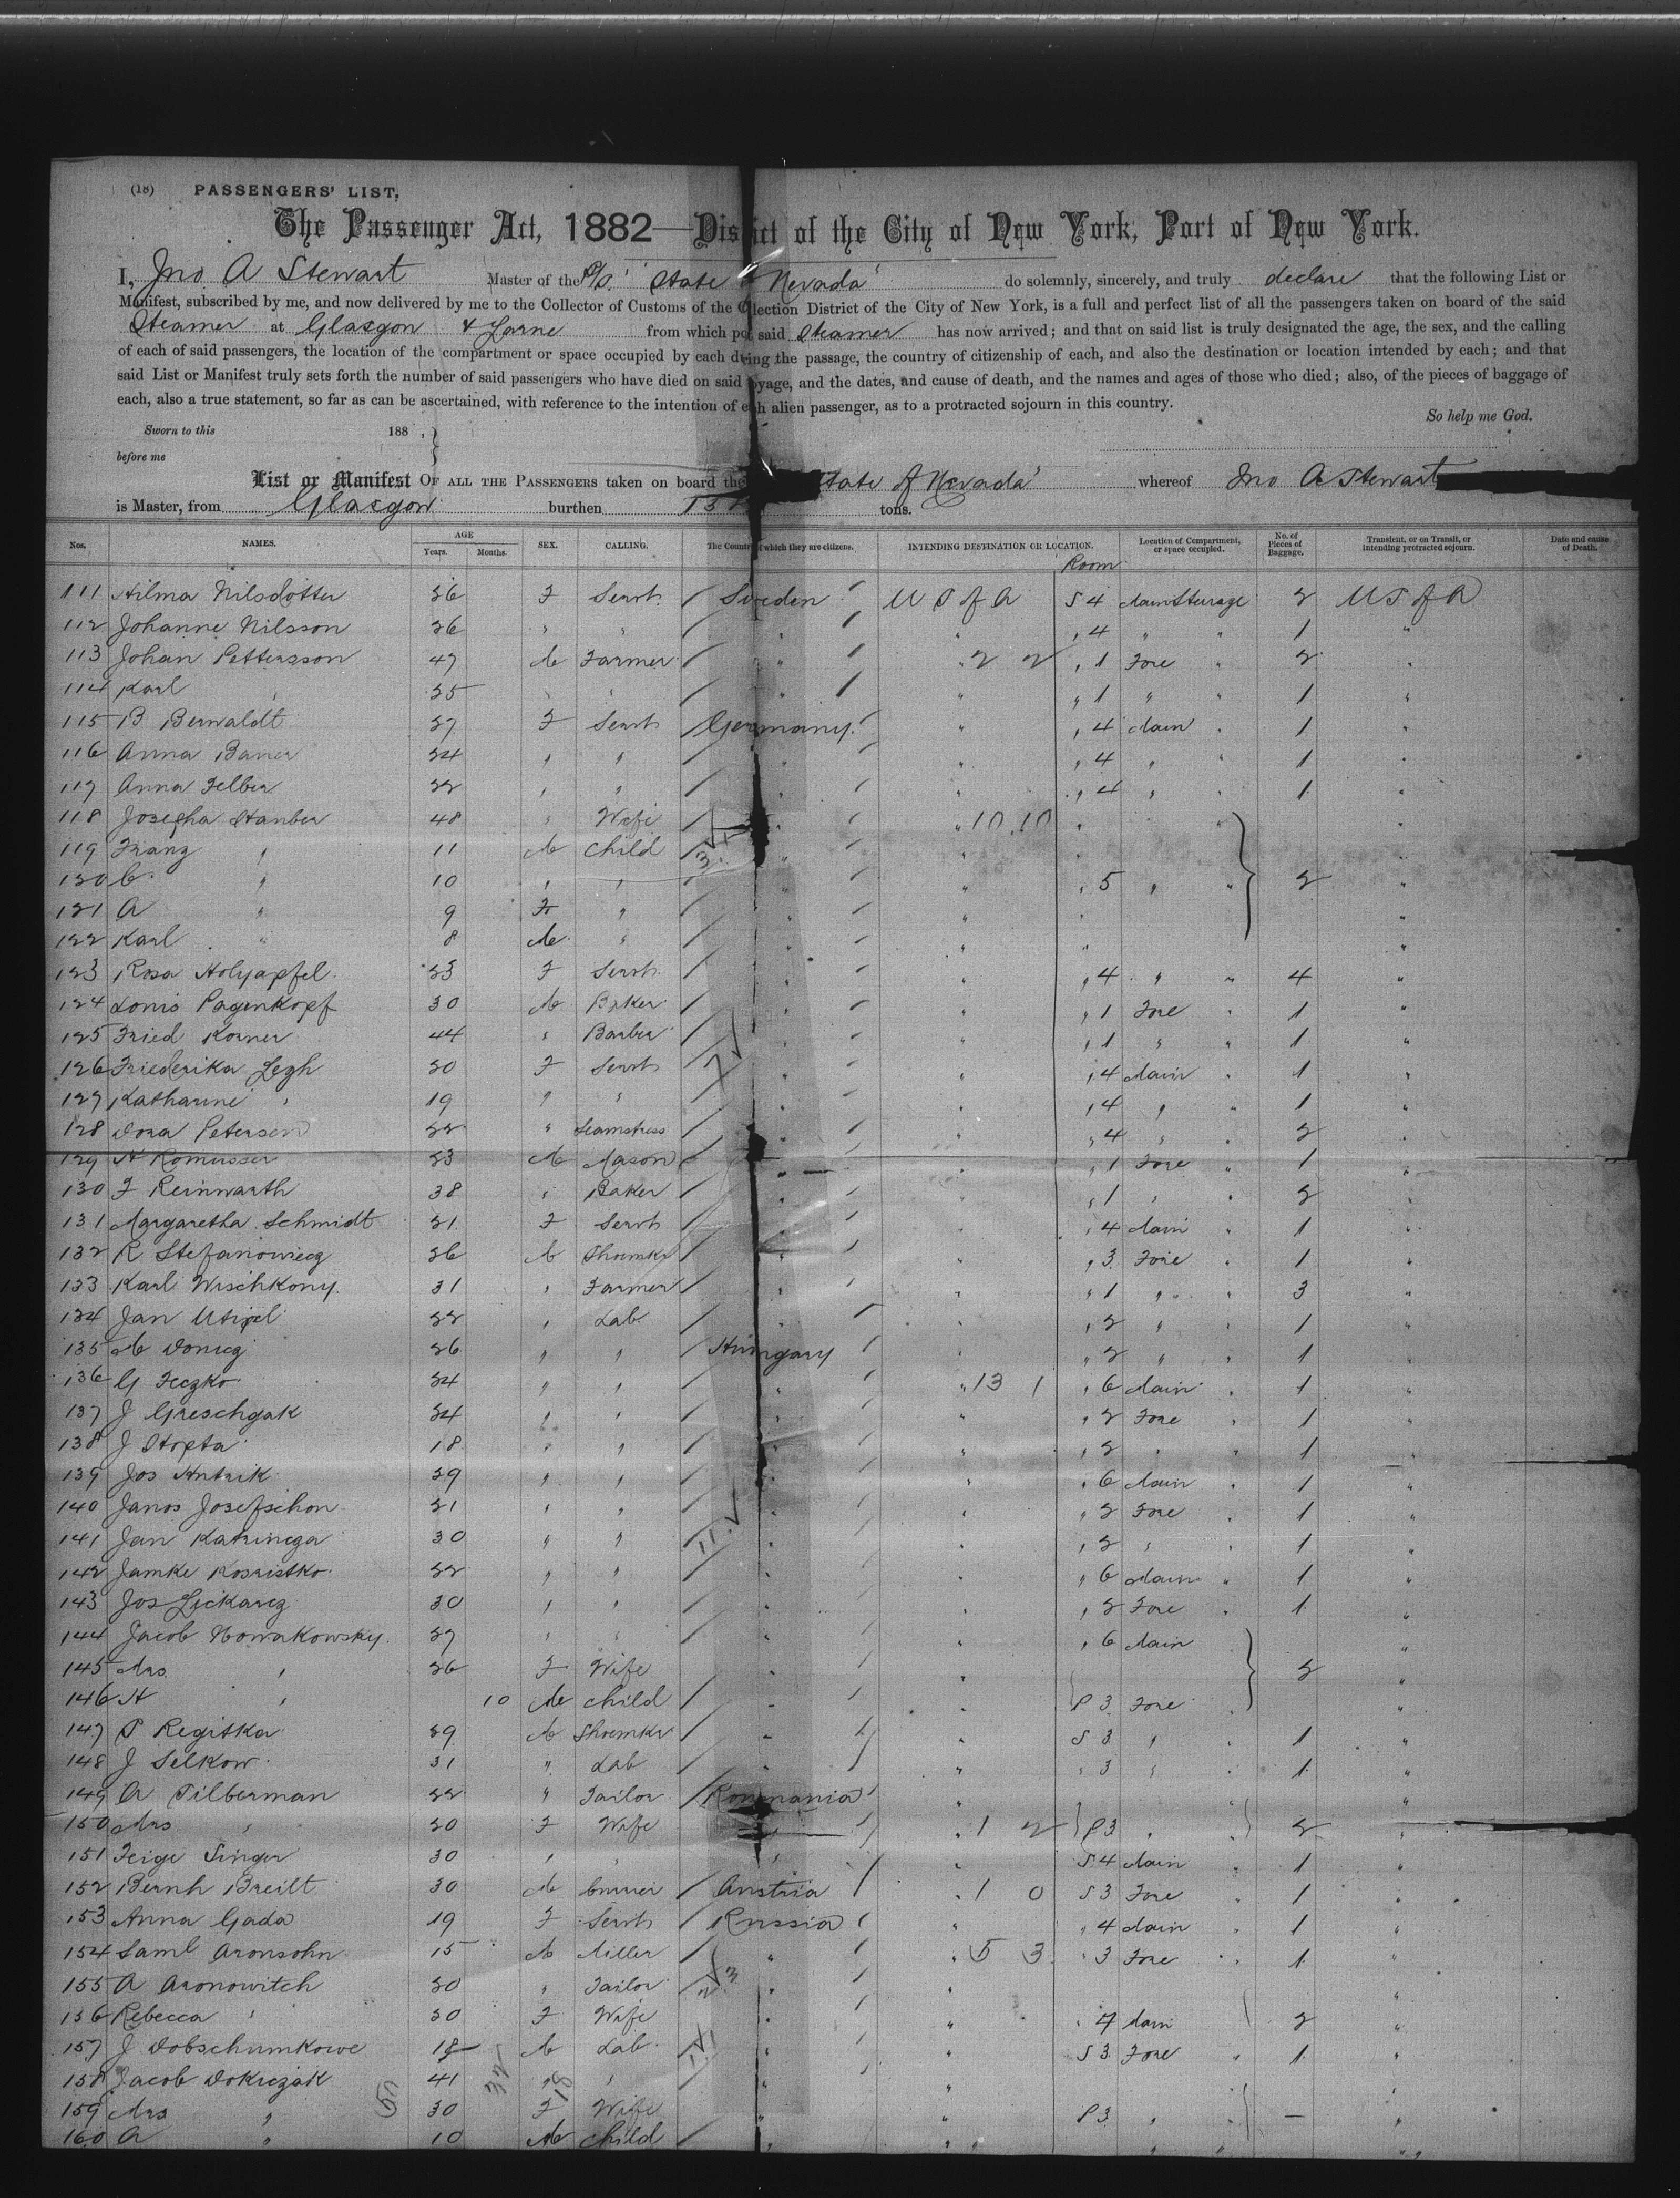 (18) PASSENGERS' LIST,
The Passenger Act, 1882—District of the City of New York, Port of New York.
I, Jno A Stewart Master of the S/S. "State of Nevada" do solemnly, sincerely, and truly declare that the following List or
Manifest, subscribed by me, and now delivered by me to the Collector of Customs of the Collection District of the City of New York, is a full and perfect list of all the passengers taken on board of the said
Steamer at Glasgow & Larne from which port said Steamer has now arrived; and that on said list is truly designated the age, the sex, and the calling
of each of said passengers, the location of the compartment or space occupied by each during the passage, the country of citizenship of each, and also the destination or location intended by each; and that
said List or Manifest truly sets forth the number of said passengers who have died on said voyage, and the dates, and cause of death, and the names and ages of those who died; also, of the pieces of baggage of
each, also a true statement, so far as can be ascertained, with reference to the intention of each alien passenger, as to a protracted sojourn in this country.
So help me God.
Sworn to this 188 .
before me
List or Manifest OF ALL THE PASSENGERS taken on board the "State of Nevada" whereof Jno A Stewart
is Master, from Glasgow burthen tons.
Nos. NAMES. AGE Years. Months. SEX. CALLING. The Country of which they are citizens. INTENDING DESTINATION OR LOCATION. Location of Compartment, or space occupied. No. of Pieces of Baggage. Transient, or on Transit, or intending protracted sojourn. Date and cause of Death.
Room
111 Hilma Nilsdotter 26 F Servt / Sweden / U S of A S 4 Main Steerage 2 U S of A
112 Johanne Nilsson 26 " " / " / " " 4 " " 1 "
113 Johan Pettersson 47 M Farmer / " / " 2 2 " 1 Fore " 2 "
114 Karl " 25 " " / " / " " 1 " " 1 "
115 B Berwaldt 27 F Servt / Germany / " " 4 Main " 1 "
116 Anna Bauer 24 " " / " / " " 4 " " 1 "
117 Anna Felber 22 " " / " / " " 4 " " 1 "
118 Josepha Stanber 48 " Wife / " / " 10 10 " "
119 Franz " 11 M Child / " / " "
120 C " 10 " " / " / " " 5 " " 2 "
121 A " 9 F " / " / " " "
122 Karl " 8 M " / " / " " "
123 Rosa Holzapfel 23 F Servt / " / " " 4 " " 4 "
124 Louis Pagenkopf 30 M Baker / " / " " 1 Fore " 1 "
125 Fried Korner 44 " Barber / " / " " 1 " " 1 "
126 Friederika Legh 20 F Servt / " / " " 4 Main " 1 "
127 Katharine " 19 " " / " / " " 4 " " 1 "
128 Dora Petersen 22 " Seamstress / " / " " 4 " " 2 "
129 23 M Mason / " / " " 1 Fore " 1 "
130 F Reinwarth 38 " Baker / " / " " 1 " " 2 "
131 Margaretha Schmidt 21 F Servt / " / " " 4 Main " 1 "
132 R Stefanowicz 26 M Shoemkr / " / " " 3 Fore " 1 "
133 Karl Wischkony 31 " Farmer / " / " " 1 " " 3 "
134 Jan 22 " Lab / " / " " 2 " " 1 "
135 M Donicz 26 " " / Hungary / " " 2 " " 1 "
136 G Feczko 24 " " / " / " 13 1 " 6 Main " 1 "
137 J Greschgak 24 " " / " / " " 2 Fore " 1 "
138 J Stopta 18 " " / " / " " 2 " " 1 "
139 Jos Hntrik 29 " " / " / " " 6 Main " 1 "
140 Janos Josefschon 21 " " / " / " " 2 Fore " 1 "
141 Jan 30 " " / " / " " 2 " " 1 "
142 Janke 22 " " / " / " " 6 Main " 1 "
143 Jos 30 " " / " / " " 2 Fore " 1 "
144 Jacob Nowakowsky 27 " " " / " " 6 Main "
145 Mrs " 26 F Wife " / " 2 "
146 H " 10 M Child / " / " P 3 Fore " "
147 P Regitska 29 M Shoemkr / " / S 3 " " 1 "
148 J Selkow 31 " Lab / " / " " 3 " " 1 "
149 A Silberman 22 " Tailor / Roumania / " " "
150 Mrs " 20 F Wife " / " 1 2 P 3 " " 2 "
151 Feige Singer 30 " " " / " S 4 Main " 1 "
152 Bernh Breitt 30 M / Austria / " 1 0 S 3 Fore " 1 "
153 Anna Gada 19 F Servt / Russia / " " 4 Main " 1 "
154 Saml Aronsohn 15 M Miller / " / " 5 3 " 3 Fore " 1 "
155 A Aronowitch 20 " Tailor / " / " "
156 Rebecca " 20 F Wife " / " " 7 Main 2 "
157 J Dobschumkowe 18 M Lab / " / " S 3 Fore " 1 "
158 Jacob Dokuzak 41 " " / " " "
159 Mrs " 30 F Wife " " P 3 " " — "
160 A " 10 M Child / " " " " "
50 32 18